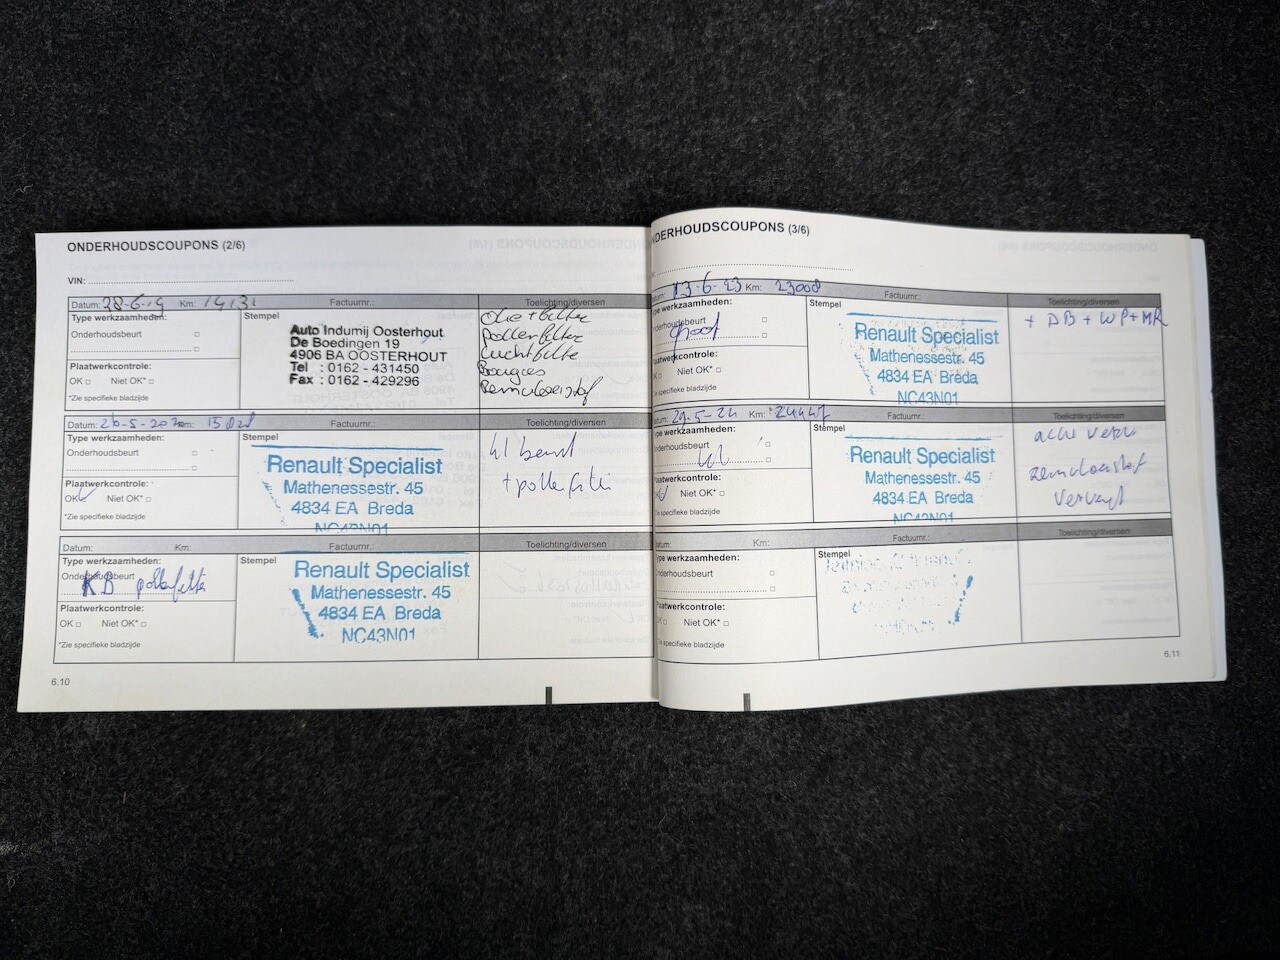 ONDERHOUDSCOUPONS (2/6)
VIN:
Datum: 28-6-19 Km: 14131 Factuurnr.: Toelichting/diversen
Type werkzaamheden:
Onderhoudsbeurt
Plaatwerkcontrole:
OK Niet OK*
*Zie specifieke bladzijde
Stempel
Auto Indumij Oosterhout
De Boedingen 19
4906 BA OOSTERHOUT
Tel : 0162 - 431450
Fax : 0162 - 429296
Olie + filter
pollenfilter
luchtfilter
Bougies
Remvloeistof
Datum: 26-5-20 Km: Factuurnr.: Toelichting/diversen
Type werkzaamheden:
Onderhoudsbeurt
Plaatwerkcontrole:
OK Niet OK*
*Zie specifieke bladzijde
Stempel
Renault Specialist
Mathenessestr. 45
4834 EA Breda
NC43N01
kl beurt
+ pollenfilter
Datum: Km: Factuurnr.: Toelichting/diversen
Type werkzaamheden:
Onderhoudsbeurt
KB pollenfilter
Plaatwerkcontrole:
OK Niet OK*
*Zie specifieke bladzijde
Stempel
Renault Specialist
Mathenessestr. 45
4834 EA Breda
NC43N01
6.10
NDERHOUDSCOUPONS (3/6)
atum: 13-6-23 Km: 23008 Factuurnr.: Toelichting/diversen
Type werkzaamheden:
nderhoudsbeurt
groot
Plaatwerkcontrole:
Niet OK*
*Zie specifieke bladzijde
Stempel
Renault Specialist
Mathenessestr. 45
4834 EA Breda
NC43N01
+ DB + WP + MR
atum: 29-5-24 Km: 24447 Factuurnr.: Toelichting/diversen
ype werkzaamheden:
nderhoudsbeurt
kl
laatwerkcontrole:
Niet OK*
*Zie specifieke bladzijde
Stempel
Renault Specialist
Mathenessestr. 45
4834 EA Breda
NC43N01
remvloeistof
ververst
atum: Km: Factuurnr.: Toelichting/diversen
Type werkzaamheden:
Onderhoudsbeurt
Plaatwerkcontrole:
OK Niet OK*
*Zie specifieke bladzijde
Stempel
6.11